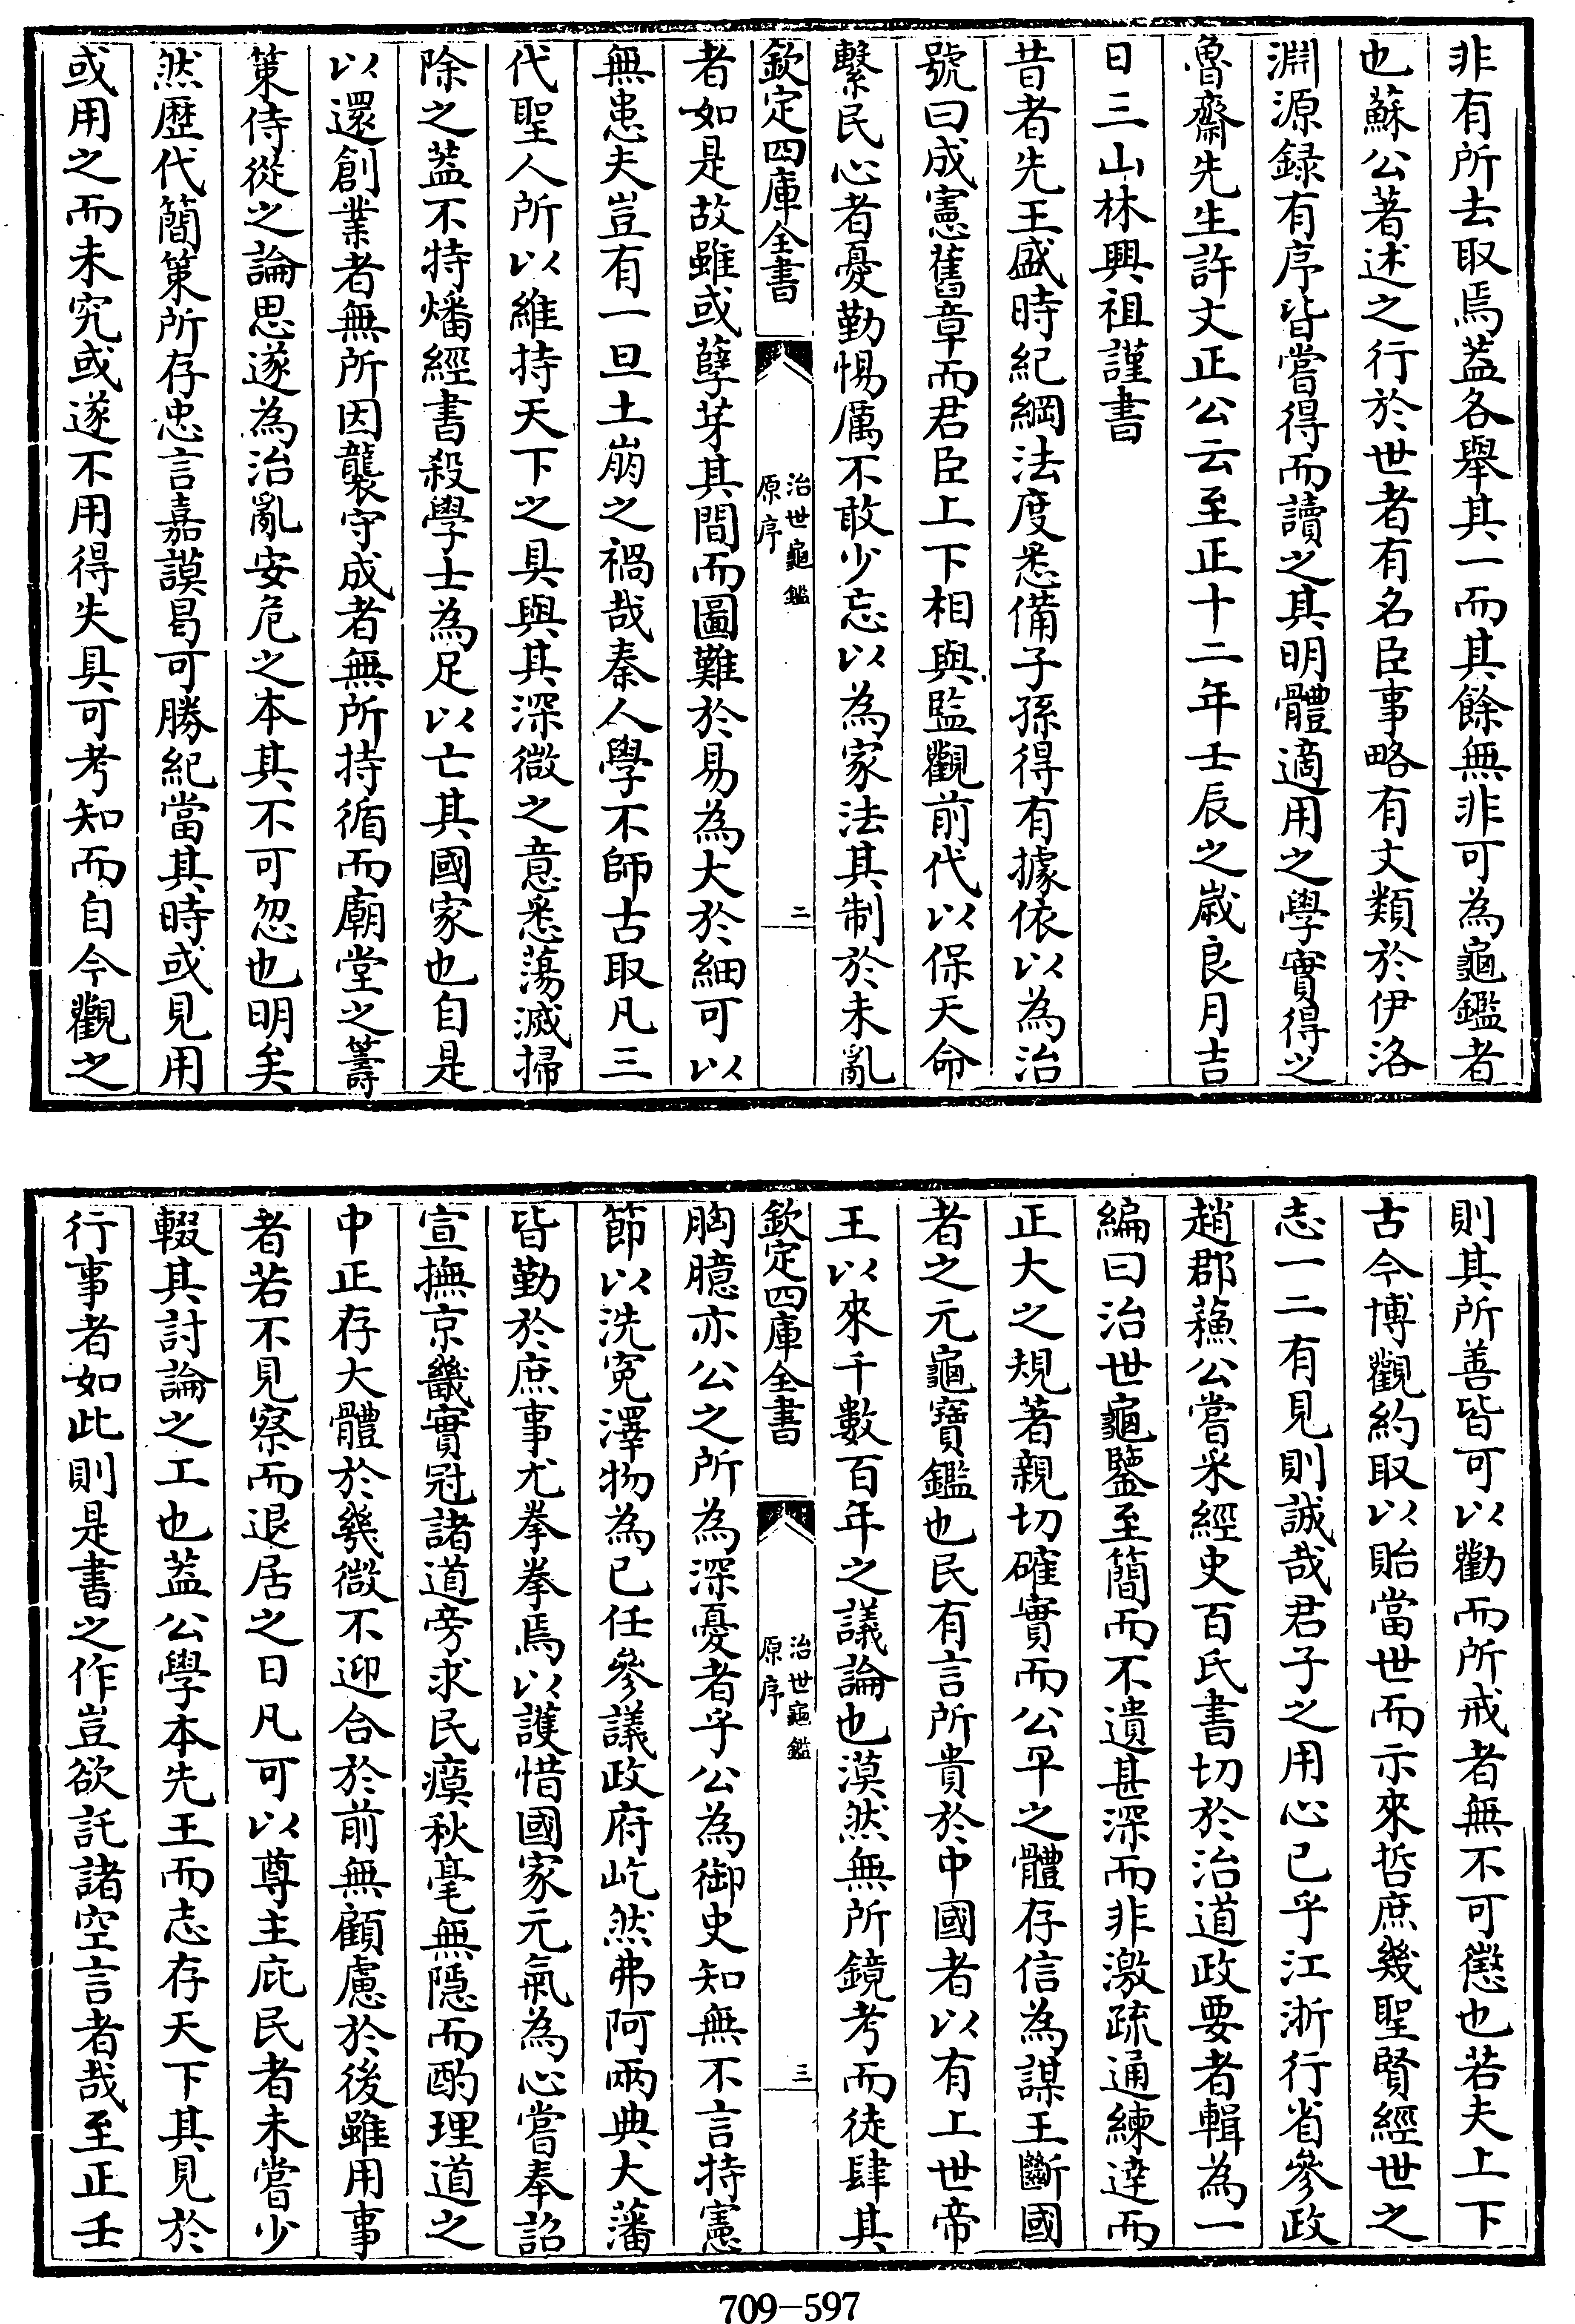 非有所去取焉葢各舉其一而其餘無非可為龜鑑者
也蘇公著述之行於世者有名臣事略有文類於伊洛
淵源録有序皆嘗得而讀之其明體適用之學實得之
魯齋先生許文正公云至正十二年壬辰之歲良月吉
日三山林興祖謹書
昔者先王盛時紀綱法度悉備子孫得有據依以為治
號曰成憲舊章而君臣上下相與監觀前代以保天命
繫民心者憂勤惕厲不敢少忘以為家法其制於未亂
欽定四庫全書
治世龜鑑
原序
二
者如是故雖或孽芽其間而圖難於易為大於細可以
無患夫豈有一旦土崩之禍哉秦人學不師古取凡三
代聖人所以維持天下之具與其深微之意悉蕩滅掃
除之葢不特燔經書殺學士為足以亡其國家也自是
以還創業者無所因襲守成者無所持循而廟堂之籌
策侍從之論思遂為治亂安危之本其不可忽也明矣
然歴代簡策所存忠言嘉謨曷可勝紀當其時或見用
或用之而未究或遂不用得失具可考知而自今觀之
則其所善皆可以勸而所戒者無不可懲也若夫上下
古今博觀約取以貽當世而示來哲庶幾聖賢經世之
志一二有見則誠哉君子之用心已乎江浙行省參政
趙郡蘓公嘗采經史百氏書切於治道政要者輯為一
編曰治世龜鑒至簡而不遺甚深而非激疏通練達而
正大之規著親切確實而公平之體存信為謀王斷國
者之元龜寶鑑也民有言所貴於中國者以有上世帝
王以來千數百年之議論也漠然無所鏡考而徒肆其
欽定四庫全書
治世龜鑑
原序
三
胸臆亦公之所為深憂者乎公為御史知無不言持憲
節以洗冤澤物為已任參議政府屹然弗阿兩典大藩
皆勤於庶事尤拳拳焉以護惜國家元氣為心嘗奉詔
宣撫京畿實冠諸道旁求民瘼秋毫無隠而酌理道之
中正存大體於幾微不迎合於前無顧慮於後雖用事
者若不見察而退居之日凡可以尊主庇民者未嘗少
輟其討論之工也葢公學本先王而志存天下其見於
行事者如此則是書之作豈欲託諸空言者哉至正壬
709-597